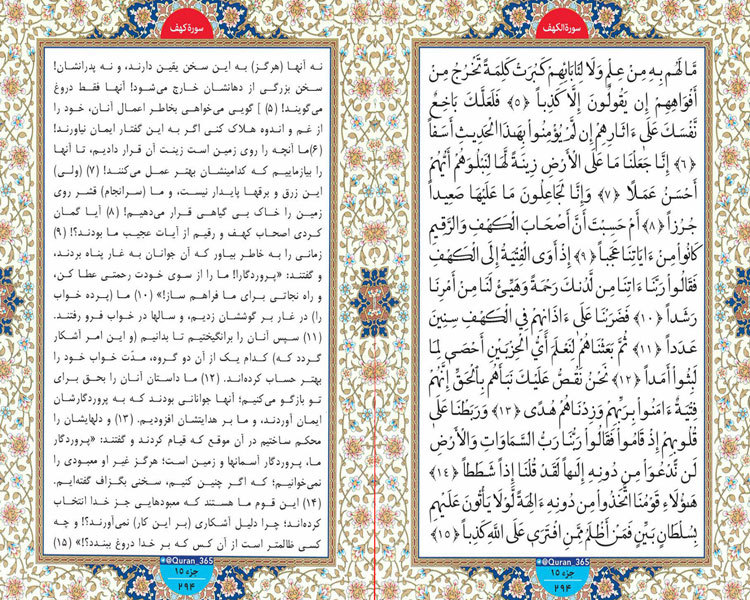 سورة الكهف
مَّا لَهُم بِهِ مِنْ عِلْمٍ وَلَا لِآبَائِهِمْ كَبُرَتْ كَلِمَةً تَخْرُجُ مِنْ
أَفْوَاهِهِمْ إِن يَقُولُونَ إِلَّا كَذِباً ﴿٥﴾ فَلَعَلَّكَ بَاخِعٌ
نَّفْسَكَ عَلَىٰ ءَاثَارِهِمْ إِن لَّمْ يُؤْمِنُواْ بِهَذَا الْحَدِيثِ أَسَفاً
﴿٦﴾ إِنَّا جَعَلْنَا مَا عَلَى الْأَرْضِ زِينَةً لَّهَا لِنَبْلُوَهُمْ أَيُّهُمْ
أَحْسَنُ عَمَلًا ﴿٧﴾ وَإِنَّا لَجَاعِلُونَ مَا عَلَيْهَا صَعِيداً
جُرُزاً ﴿٨﴾ أَمْ حَسِبْتَ أَنَّ أَصْحَابَ الْكَهْفِ وَالرَّقِيمِ
كَانُواْ مِنْ ءَايَاتِنَا عَجَباً ﴿٩﴾ إِذْ أَوَى الْفِتْيَةُ إِلَى الْكَهْفِ
فَقَالُواْ رَبَّنَا ءَاتِنَا مِن لَّدُنكَ رَحْمَةً وَهَيِّئْ لَنَا مِنْ أَمْرِنَا
رَشَداً ﴿١٠﴾ فَضَرَبْنَا عَلَىٰ ءَاذَانِهِمْ فِي الْكَهْفِ سِنِينَ
عَدَداً ﴿١١﴾ ثُمَّ بَعَثْنَاهُمْ لِنَعْلَمَ أَيُّ الْحِزْبَيْنِ أَحْصَى لِمَا
لَبِثُواْ أَمَداً ﴿١٢﴾ نَحْنُ نَقُصُّ عَلَيْكَ نَبَأَهُم بِالْحَقِّ إِنَّهُمْ
فِتْيَةٌ ءَامَنُواْ بِرَبِّهِمْ وَزِدْنَاهُمْ هُدًى ﴿١٣﴾ وَرَبَطْنَا عَلَىٰ
قُلُوبِهِمْ إِذْ قَامُواْ فَقَالُواْ رَبُّنَا رَبُّ السَّمَاوَاتِ وَالْأَرْضِ
لَن نَّدْعُوَاْ مِن دُونِهِ إِلَهاً لَّقَدْ قُلْنَا إِذاً شَطَطاً ﴿١٤﴾
هَؤُلَاءِ قَوْمُنَا اتَّخَذُواْ مِن دُونِهِ ءَالِهَةً لَّوْلَا يَأْتُونَ عَلَيْهِم
بِسُلْطَانٍ بَيِّنٍ فَمَنْ أَظْلَمُ مِمَّنِ افْتَرَىٰ عَلَى اللَّهِ كَذِباً ﴿١٥﴾
@Quran_365
جزء ١٥
٢٩۴
سورة کهف
نه آنها (هرگز) به این سخن یقین دارند، و نه پدرانشان!
سخن بزرگی از دهانشان خارج می‌شود! آنها فقط دروغ
می‌گویند! (۵) ] گویی می‌خواهی بخاطر اعمال آنان، خود را
از غم و اندوه هلاک کنی اگر به این گفتار ایمان نیاورند!
(۶)ما آنچه را روی زمین است زینت آن قرار دادیم، تا آنها
را بیازماییم که کدامینشان بهتر عمل می‌کنند! (۷) (ولی)
این زرق و برقها پایدار نیست، و ما (سرانجام) قشر روی
زمین را خاک بی گیاهی قرار می‌دهیم! (۸) آیا گمان
کردی اصحاب کهف و رقیم از آیات عجیب ما بودند؟! (۹)
زمانی را به خاطر بیاور که آن جوانان به غار پناه بردند،
و گفتند: «پروردگارا! ما را از سوی خودت رحمتی عطا کن،
و راه نجاتی برای ما فراهم ساز!» (۱۰) ما (پرده خواب
را) در غار بر گوششان زدیم، و سالها در خواب فرو رفتند.
(۱۱) سپس آنان را برانگیختیم تا بدانیم (و این امر آشکار
گردد که) کدام یک از آن دو گروه، مدّت خواب خود را
بهتر حساب کرده‌اند. (۱۲) ما داستان آنان را بحق برای
تو بازگو می‌کنیم؛ آنها جوانانی بودند که به پروردگارشان
ایمان آوردند، و ما بر هدایتشان افزودیم. (۱۳) و دلهایشان را
محکم ساختیم در آن موقع که قیام کردند و گفتند: «پروردگار
ما، پروردگار آسمانها و زمین است؛ هرگز غیر او معبودی را
نمی‌خوانیم؛ که اگر چنین کنیم، سخنی بگزاف گفته‌ایم.
(۱۴) این قوم ما هستند که معبودهایی جز خدا انتخاب
کرده‌اند؛ چرا دلیل آشکاری (بر این کار) نمی‌آورند؟! و چه
کسی ظالمتر است از آن کس که بر خدا دروغ ببندد؟!» (۱۵)
@Quran_365
جزء ۱۵
۲۹۴